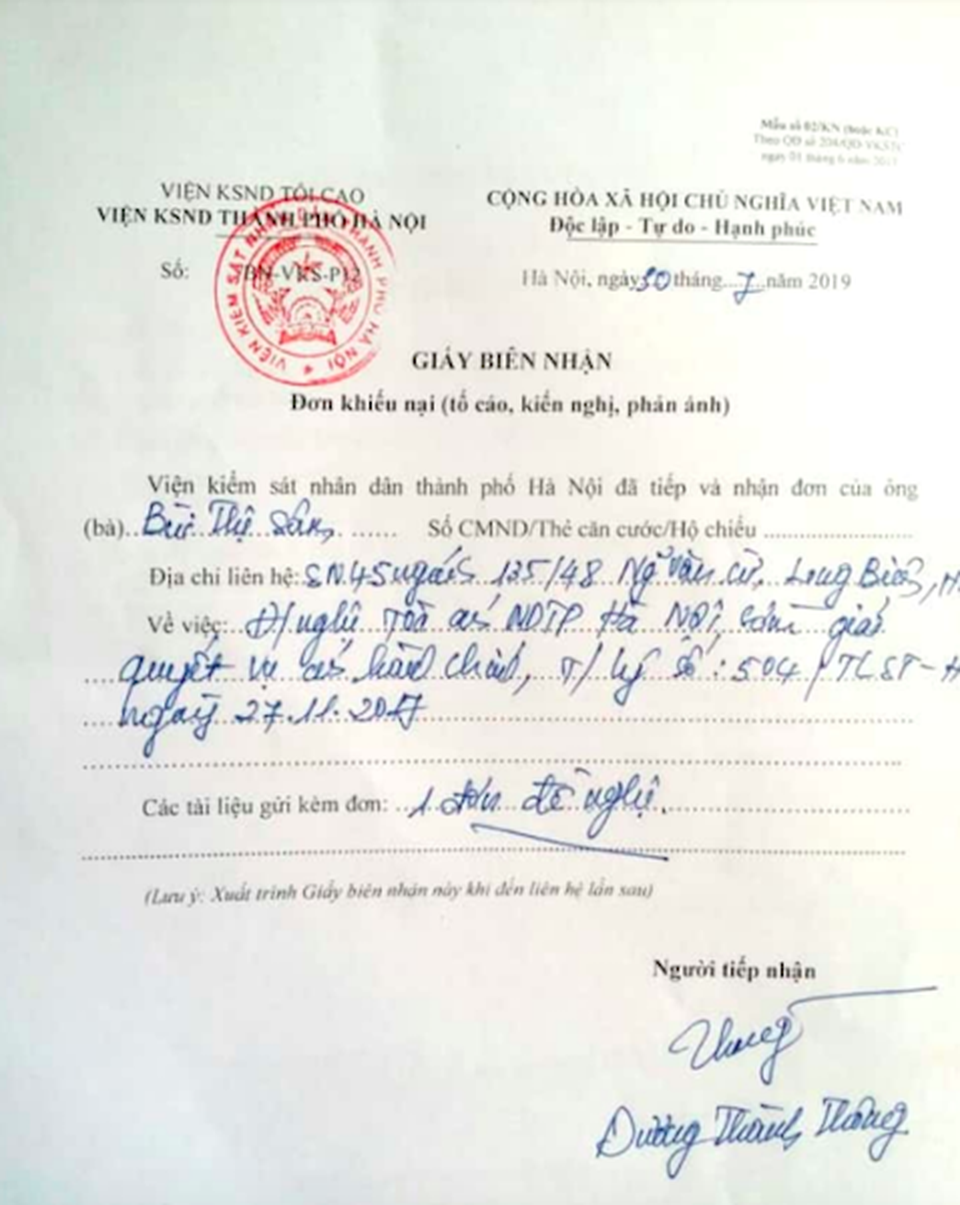 Mẫu số 02/KN (hoặc KC)
Theo QĐ số 204/QĐ-VKSTC
ngày 01 tháng 6 năm
VIỆN KSND TỐI CAO
VIỆN KSND THÀNH PHỐ HÀ NỘI
CỘNG HÒA XÃ HỘI CHỦ NGHĨA VIỆT NAM
Độc lập - Tự do - Hạnh phúc
Số: /BN-VKS-P12
VIỆN KIỂM SÁT NHÂN DÂN THÀNH PHỐ HÀ NỘI
Hà Nội, ngày 30 tháng 7 năm 2019
GIẤY BIÊN NHẬN
Đơn khiếu nại (tố cáo, kiến nghị, phản ánh)
Viện kiểm sát nhân dân thành phố Hà Nội đã tiếp và nhận đơn của ông
(bà) Bùi Thị Số CMND/Thẻ căn cước/Hộ chiếu
Địa chỉ liên hệ: SN 45 ngách 135/48 Ng Văn Cừ, Long Biên, H
Về việc: Đ/nghị Tòa án NDTP Hà Nội, sớm giải
quyết vụ án hành chính, T/lý số: 504/TLST-H
ngày 27.11.2017
Các tài liệu gửi kèm đơn: 1 đơn đề nghị.
(Lưu ý: Xuất trình Giấy biên nhận này khi đến liên hệ lần sau)
Người tiếp nhận
Dương Thành Thông